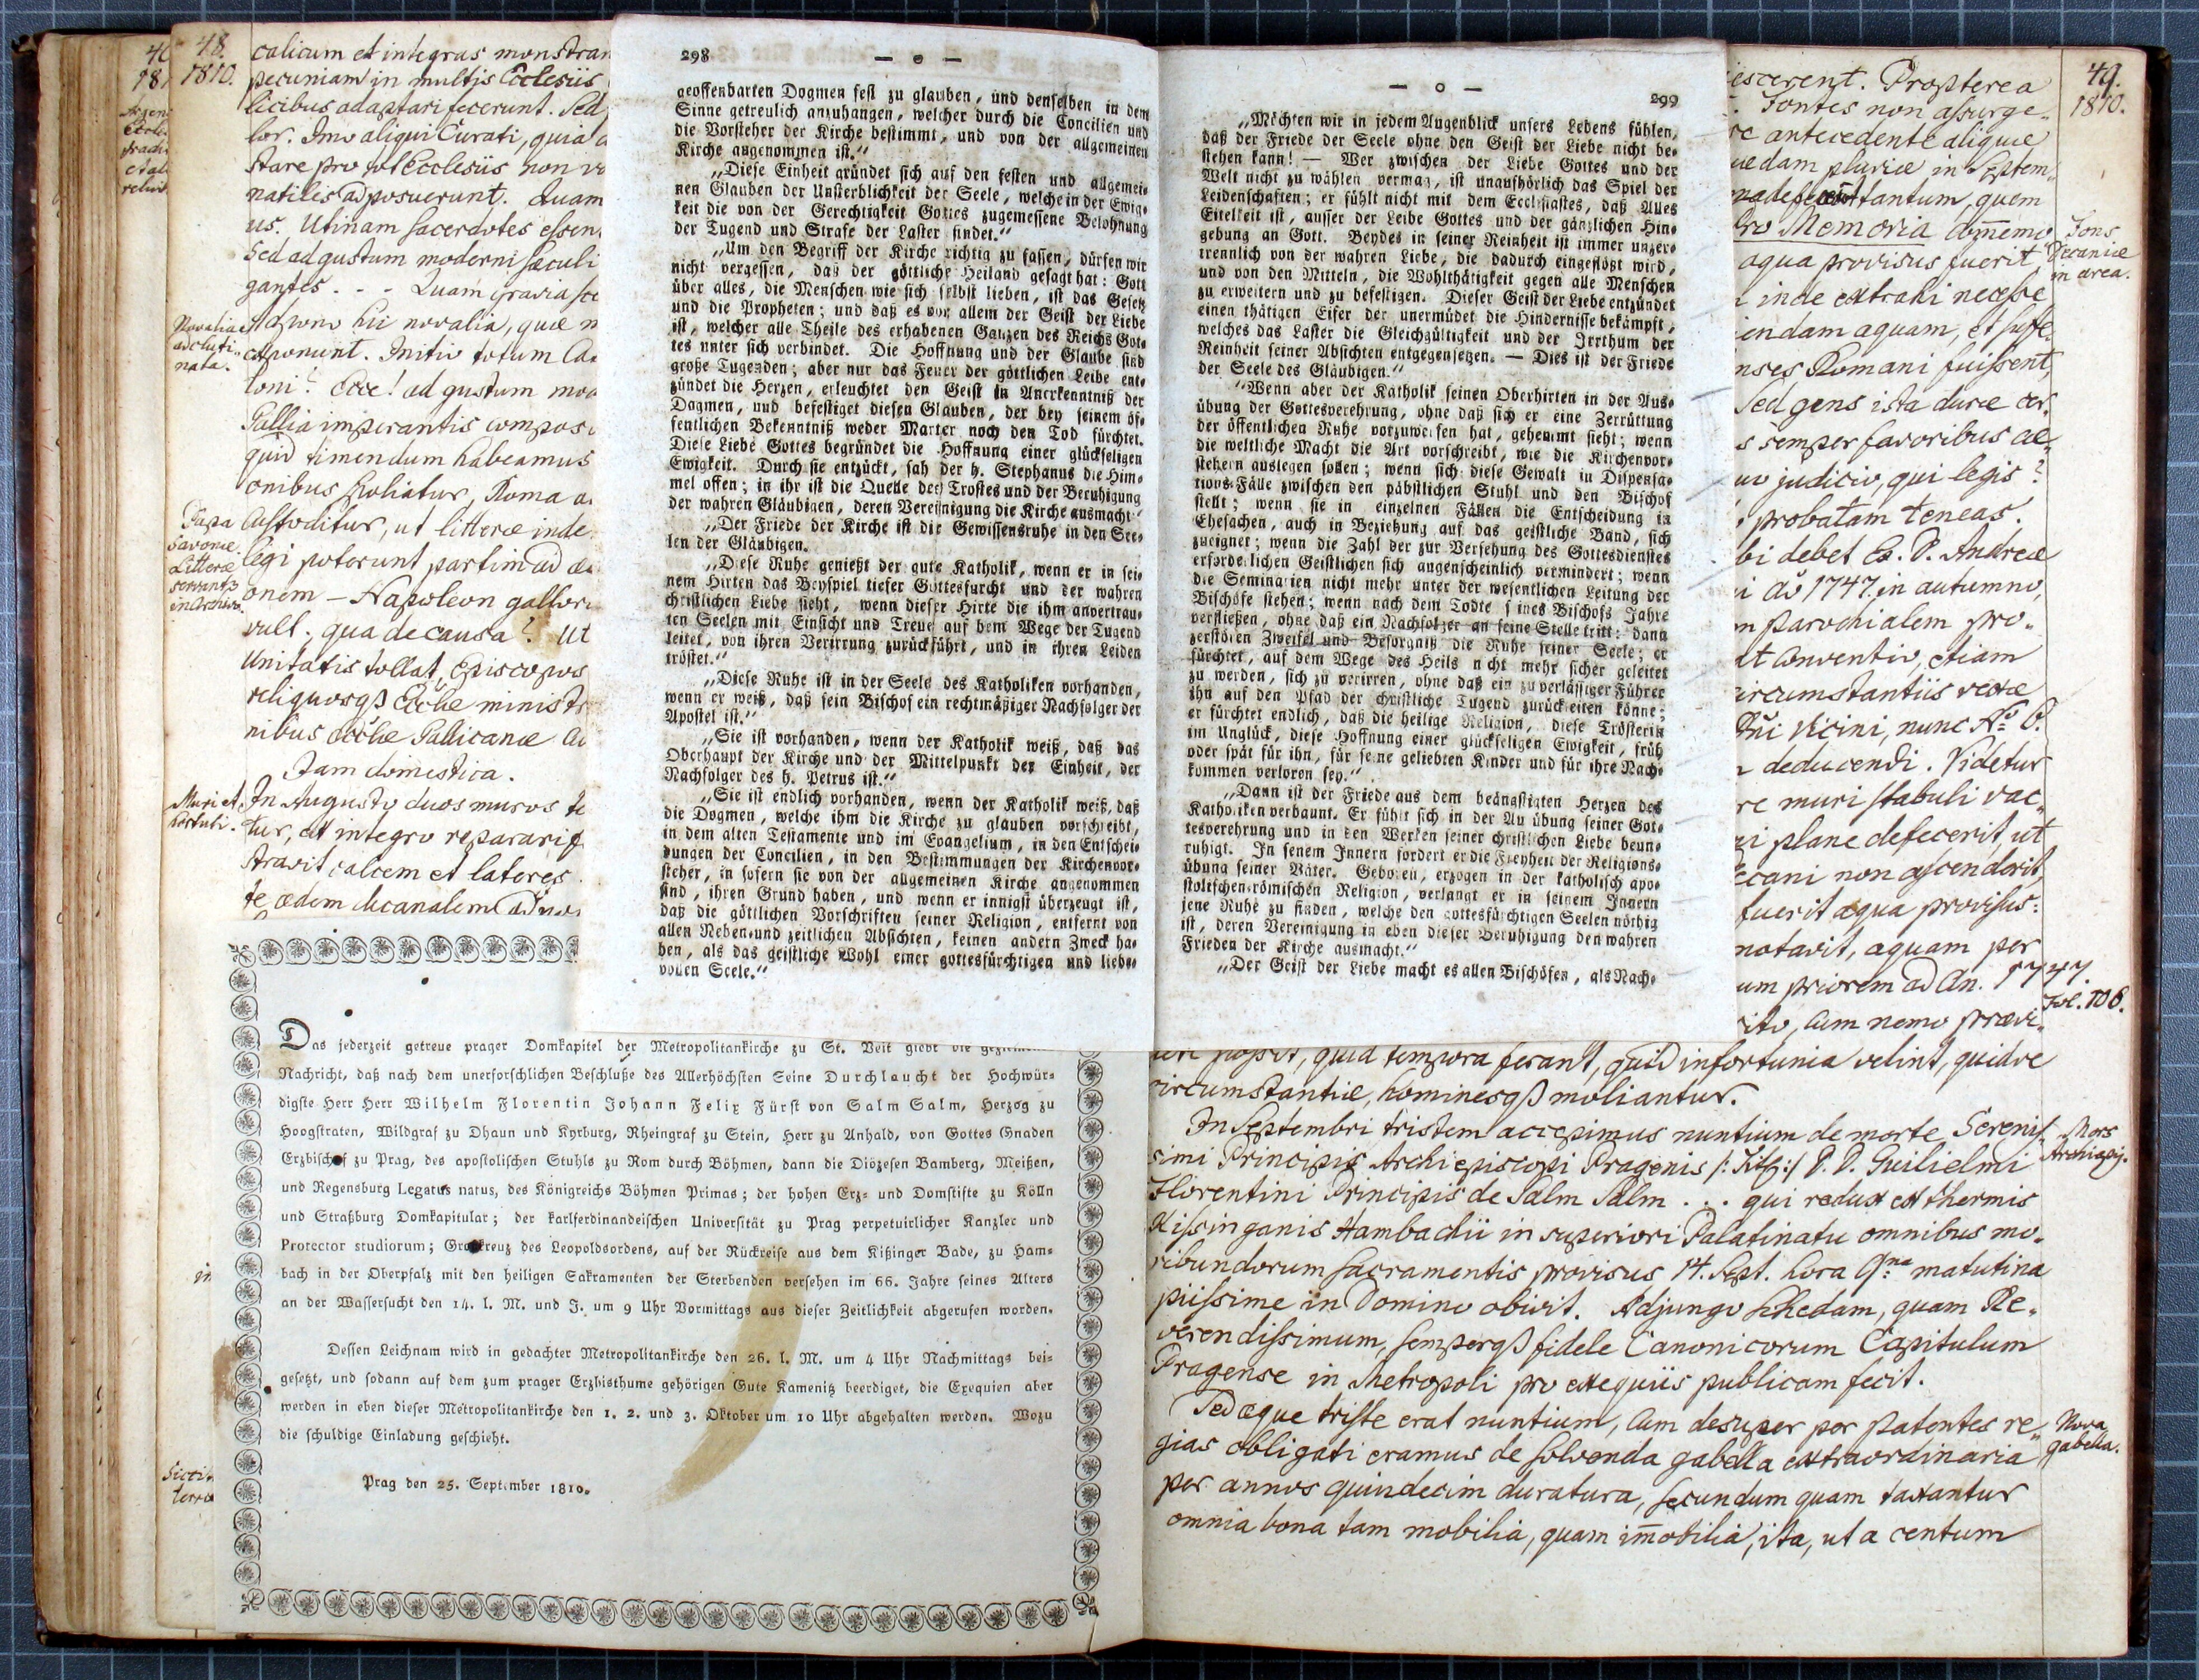 48.
1810.
calicum et integras monstran
pecuniam in multis Ecclesiis
licibus adaptari fecerunt. Sed
lor. Imo aliqui Curati, quia
stare pro Ecclesiis non
natiles adposuerunt. Quam
us. Utinam sacerdotes essen
sed ad gustum moderni sæculi
gantes. . - Quam gravia
Novaliæ
nata.
hii novalia, quæ
Initio totum
loni? Ecce! ad gustum mo
Gallia imperantis compos
quid timendum habeamus
onibus spoliatur, Roma
Papa
Savonæ.
Litteræ
servant
in Archivo.
Custoditur, ut litteræ inde
legi poterunt partim ad
onem – Napoleon gallor
vult. qua de causa? Ut
Unitatis tollat, Episcopos
reliquosqꝫ Ecclæ minist
nibus Gallicanæ
Jam domestica.
Muri et
hortuli.
In Augusto duos muros
tur, ex integro reparari f
stravit calcem et lateres
te ædem decanalem
298
geoffenbarten Dogmen fest zu glauben, und denselben in dem
Sinne getreulich anzuhangen, welcher durch die Concilien und
die Vorsteher der Kirche bestimmt, und von der allgemeinen
Kirche angenommen ist.“
„Diese Einheit gründet sich auf den festen und allgemei-
nen Glauben der Unsterblichkeit der Seele, welche in der Ewig-
keit die von der Gerechtigkeit Gottes zugemessene Belohnung
der Tugend und Strafe der Laster findet.“
„Um den Begriff der Kirche richtig zu fassen, dürfen wir
nicht vergessen, daß der göttliche Heiland gesagt hat: Gott
über alles, die Menschen wie sich selbst lieben, ist das Gesetz
und die Propheten; und daß es vor allem der Geist der Liebe
ist, welcher alle Theile des erhabenen Ganzen des Reichs Got-
tes unter sich verbindet. Die Hoffnung und der Glaube sind
große Tugenden; aber nur das Feuer der göttlichen Leibe ent-
zündet die Herzen, erleuchtet den Geist in Anerkenntniß der
Dagmen, und befestiget diesen Glauben, der bey seinem öf-
fentlichen Bekenntniß weder Marter noch den Tod fürchtet.
Diese Liebe Gottes begründet die Hoffnung einer glückseligen
Ewigkeit. Durch sie entzückt, sah der h. Stephanus die Him-
mel offen; in ihr ist die Quelle des Trostes und der Beruhigung
der wahren Gläubigen, deren Vereinigung die Kirche ausmacht“
„Der Friede der Kirche ist die Gewissensruhe in den See-
len der Gläubigen.
„Diese Ruhe genießt der gute Katholik, wenn er in sei-
nem Hirten das Beyspiel tiefer Gottesfurcht und der wahren
christlichen Liebe sieht, wenn dieser Hirte die ihm anvertrau-
ten Seelen mit Einsicht und Treue auf dem Wege der Tugend
leitet, von ihren Verirrung zurückführt, und in ihren Leiden
tröstet.“
„Diese Ruhe ist in der Seele des Katholiken vorhanden,
wenn er weiß, daß sein Bischof ein rechtmäßiger Nachfolger der
Apostel ist.“
„Sie ist vorhanden, wenn der Katholik weiß, daß das
Oberhaupt der Kirche und der Mittelpunkt der Einheit, der
Nachfolger des h. Petrus ist.“
„Sie ist endlich vorhanden, wenn der Katholik weiß, daß
die Dogmen, welche ihm die Kirche zu glauben vorschreibt,
in dem alten Testamente und im Evangelium, in den Entschei-
dungen der Concilien, in den Bestimmungen der Kirchenvor-
steher, in sofern sie von der allgemeinen Kirche angenommen
sind, ihren Grund haben, und wenn er innigst überzeugt ist,
daß die göttlichen Vorschriften seiner Religion, entfernt von
allen Neben-und zeitlichen Absichten, keinen andern Zweck ha-
ben, als das geistliche Wohl einer gottesfürchtigen und liebe-
vollen Seele.“
Das jederzeit getreue prager Domkapitel der Metropolitankirche zu St. Veit giebt die
Nachricht, daß nach dem unerforschlichen Beschluße des Allerhöchsten Seine Durchlaucht der Hochwür-
digste Herr Herr Wilhelm Florentin Johann Felix Fürst von Salm Salm, Herzog zu
Hoogstraten, Wildgraf zu Dhaun und Kyrburg, Rheingraf zu Stein, Herr zu Anhald, von Gottes Gnaden
Erzbischof zu Prag, des apostolischen Stuhls zu Rom durch Böhmen, dann die Diözesen Bamberg, Meißen,
und Regensburg Legatus natus, des Königreichs Böhmen Primas; der hohen Erz- und Domstifte zu Kölln
und Straßburg Domkapitular; der karlferdinandeischen Universität zu Prag perpetuirlicher Kanzler und
Protector studiorum; Großkreuz des Leopoldsordens, auf der Rückreise aus dem Kißinger Bade, zu Ham-
bach in der Oberpfalz mit den heiligen Sakramenten der Sterbenden versehen im 66. Jahre seines Alters
an der Wassersucht den 14. l. M. und J. um 9 Uhr Vormittags aus dieser Zeitlichkeit abgerufen worden.
Dessen Leichnam wird in gedachter Metropolitankirche den 26. l. M. um 4 Uhr Nachmittags bei-
gesetzt, und sodann auf dem zum prager Erzbisthume gehörigen Gute Kamenitz beerdiget, die Exequien aber
werden in eben dieser Metropolitankirche den 1. 2. und 3. Oktober um 10 Uhr abgehalten werden. Wozu
die schuldige Einladung geschieht.
Prag den 25. September 1810.
299
„Möchten wir in jedem Augenblick unsers Lebens fühlen,
daß der Friede der Seele ohne den Geist der Liebe nicht be-
stehen kann! — Wer zwischen der Liebe Gottes und der
Welt nicht zu wählen vermag, ist unaufhörlich das Spiel der
Leidenschaften; er fühlt nicht mit dem Ecclesiastes, daß Alles
Eitelkeit ist, ausser der Leibe Gottes und der gänzlichen Hin-
gebung an Gott. Beydes in seiner Reinheit ist immer unzer-
trennlich von der wahren Liebe, die dadurch eingeflößt wird,
und von den Mitteln, die Wohlthätigkeit gegen alle Menschen
zu erweitern und zu befestigen. Dieser Geist der Liebe entzündet
einen thätigen Eifer der unermüdet die Hindernisse bekämpft,
welches das Laster die Gleichgültigkeit und der Irrthum der
Reinheit seiner Absichten entgegensetzen. — Dies ist der Friede
der Seele des Gläubigen.“
„Wenn aber der Katholik seinen Oberhirten in der Aus-
übung der Gottesverehrung, ohne daß sich er eine Zerrüttung
der öffentlichen Ruhe vorzuwerfen hat, gehemmt sieht; wenn
die weltliche Macht die Art vorschreibt, wie die Kirchenvor-
stehern auslegen sollen; wenn sich diese Gewalt in Dispensa-
tions-Fälle zwischen den päbstlichen Stuhl und den Bischof
stellt; wenn sie in einzelnen Fällen die Entscheidung in
Ehesachen, auch in Beziehung auf das geistliche Band, sich
zueignet; wenn die Zahl der zur Versehung des Gottesdienstes
erforderlichen Geistlichen sich augenscheinlich vermindert; wenn
die Seminarien nicht mehr unter der wesentlichen Leitung der
Bischöfe stehen; wenn nach dem Todte seines Bischofs Jahre
verfließen, ohne daß ein Nachfolger an seine Stelle tritt: dann
zerstören Zweifel und Besorgniß die Ruhe seiner Seele; er
fürchtet, auf dem Wege des Heils nicht mehr sicher geleitet
zu werden, sich zu verirren, ohne daß ein zuverlässiger Führer
ihn auf den Pfad der christliche Tugend zurückleiten könne;
er fürchtet endlich, daß die heilige Religion, diese Trösterin
im Unglück, diese Hoffnung einer glückseligen Ewigkeit, früh
oder spät für ihn, für seine geliebten Kinder und für ihre Nach-
kommen verloren sey.“
„Dann ist der Friede aus dem beängstigten Herzen des
Katholiken verbannt. Er fühlt sich in der Ausübung seiner Got-
tesverehrung und in den Werken seiner christlichen Liebe beun-
ruhigt. In senem Innern fordert er die Freyheit der Religions-
übung seiner Väter. Geboren, erzogen in der katholisch apo-
stolischen-römischen Religion, verlangt er in seinem Innern
jene Ruhe zu finden, welche den gottesfürchtigen Seelen nöthig
ist, deren Vereinigung in eben dieser Beruhigung den wahren
Frieden der Kirche ausmacht.“
„Der Geist der Liebe macht es allen Bischöfen, als Nach-
49.
1810.
escerent. Propterea
Fontes non assurge-
antecedente aliquæ
dam pluviæ in Septem-
tantum, quem
Pro Memoria
Fons
Decaniæ
in area.
aqua provisus fuerit
inde extrahi necesse
endam aquam, et
nses Romani fuissent,
Sed gens ista duræ cer
s semper favoribus
judicio, qui legis?
probatam teneas.
bi debet Ex. P. Andreæ
aö 1747. in autumno,
parochialem pro-
Conventio, etiam
ircumstantiis
Vicini, nunc No 6.
deducendi. Videtur
re muri stabuli vac
plane defecerit, ut
ecani non ascenderit,
fuerit aqua provisus:
notavit, aquam per
um priorem ad An. 1747.
Fol. 106.
Cum nemo prævi-
possit, quid tempora ferant, quid infortunia velint, quidve
circumstantiæ, hominesqꝫ moliantur.
In Septembri tristem accepimus nuntium de morte Serenis-
Mors
Archiepi.
simi Principis Archiepiscopi Pragenis /: Titl :/ P. D. Guilielmi
Florentini Principis de Salm Salm . . . qui redux ex thermis
Kissinganis Hambachii in superiori Palatinatu omnibus mo-
ribundorum sacramentis provisus 14. Sept. hora 9na matutina
piissime in Domino obivit. Adjungo schedam, quam Re-
verendissimum, semperqꝫ fidele Canonicorum Capitulum
Pragense in Metropoli pro exequiis publicam fecit.
Sed æque triste erat nuntium, Cum desuper per patentes re-
Nova
gabella.
gias obligati eramus de solvenda gabella extraordinaria
per annos quindecim duratura, secundum quam taxantur
omnia bona tam mobilia, quam im̅obilia, ita, ut a centum